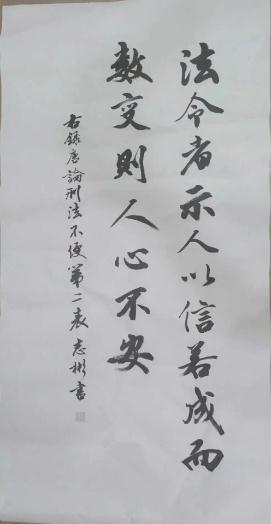 法令者示人以信若成而
數变則人心不安
右錄唐論刑法不便第二表 志彬書